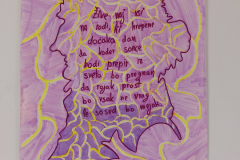 Žive naj vsi
narodi, ki hrepene
dočakat dan
da koder sonce
hodi prepir iz
sveta bo pregnan
da rojak prost
bo vsak ne vrag
le sosed bo mejak